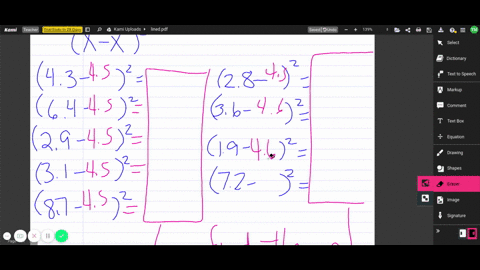 Kami
Teacher
Kami Uploads
bnad.pdf
Saved
Undo
139%
Select
Dictionary
Text to Speech
Markup
Comment
Text Box
Equation
Drawing
Shapes
Eraser
Image
Signature
(X-X)
(4.3-4.5)²=
(6.4-4.5)²=
(2.9-4.5)²=
(3.1-4.5)²=
(8.7-4.5)²=
(2.8-4.5)²=
(3.6-4.6)²=
(1.9-4.6)²=
(7.2- )²=